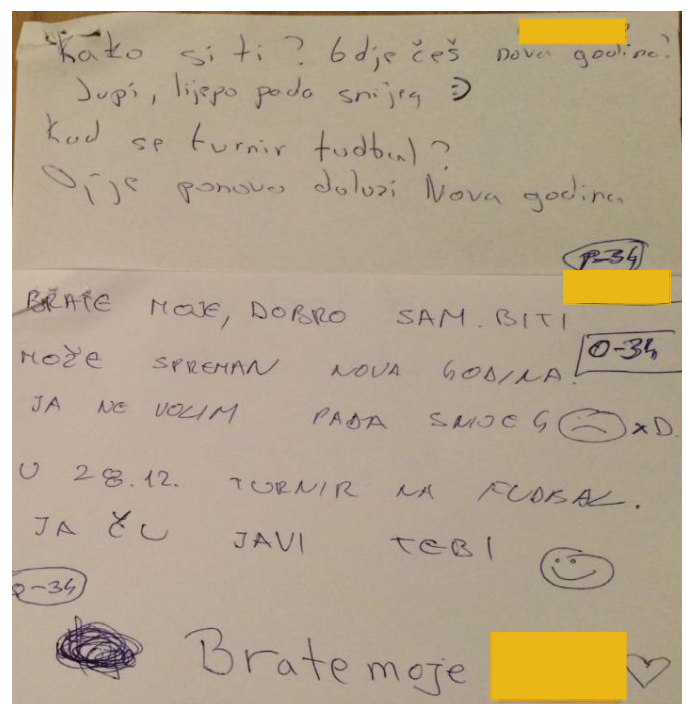 Kako si ti? Gdje češ nova godina?
Jupi, lijepo pada snijeg :)
Kad se turnir fudbal?
ponovo dolazi Nova godina
P-34
BRATE MOJE, DOBRO SAM. BITI
O-34
MOŽE SPREMAN NOVA GODINA.
JA NE VOLIM PADA SNIJEG ☹ xD.
U 28.12. TURNIR NA FUDBAL.
JA ĆU JAVI TEBI ☺
P-34
Brate moje ♡